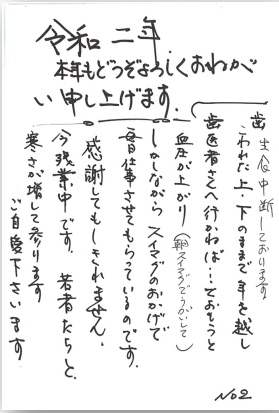 令和二年.
本年もどうぞよろしくおねが
い申し上げます.
歯生食中断しております
こわれた上・下のままで年を越し
歯医者さんへ行かねば…ておもうと
血圧が上がり(朝スイマグでうがいして)
しかしながらスイマグのおかげで
毎日仕事させてもらっているのです.
感謝してもしきれません.
今残業中です. 若者たちと.
寒さが増して参ります
ご自愛下さいます
No2